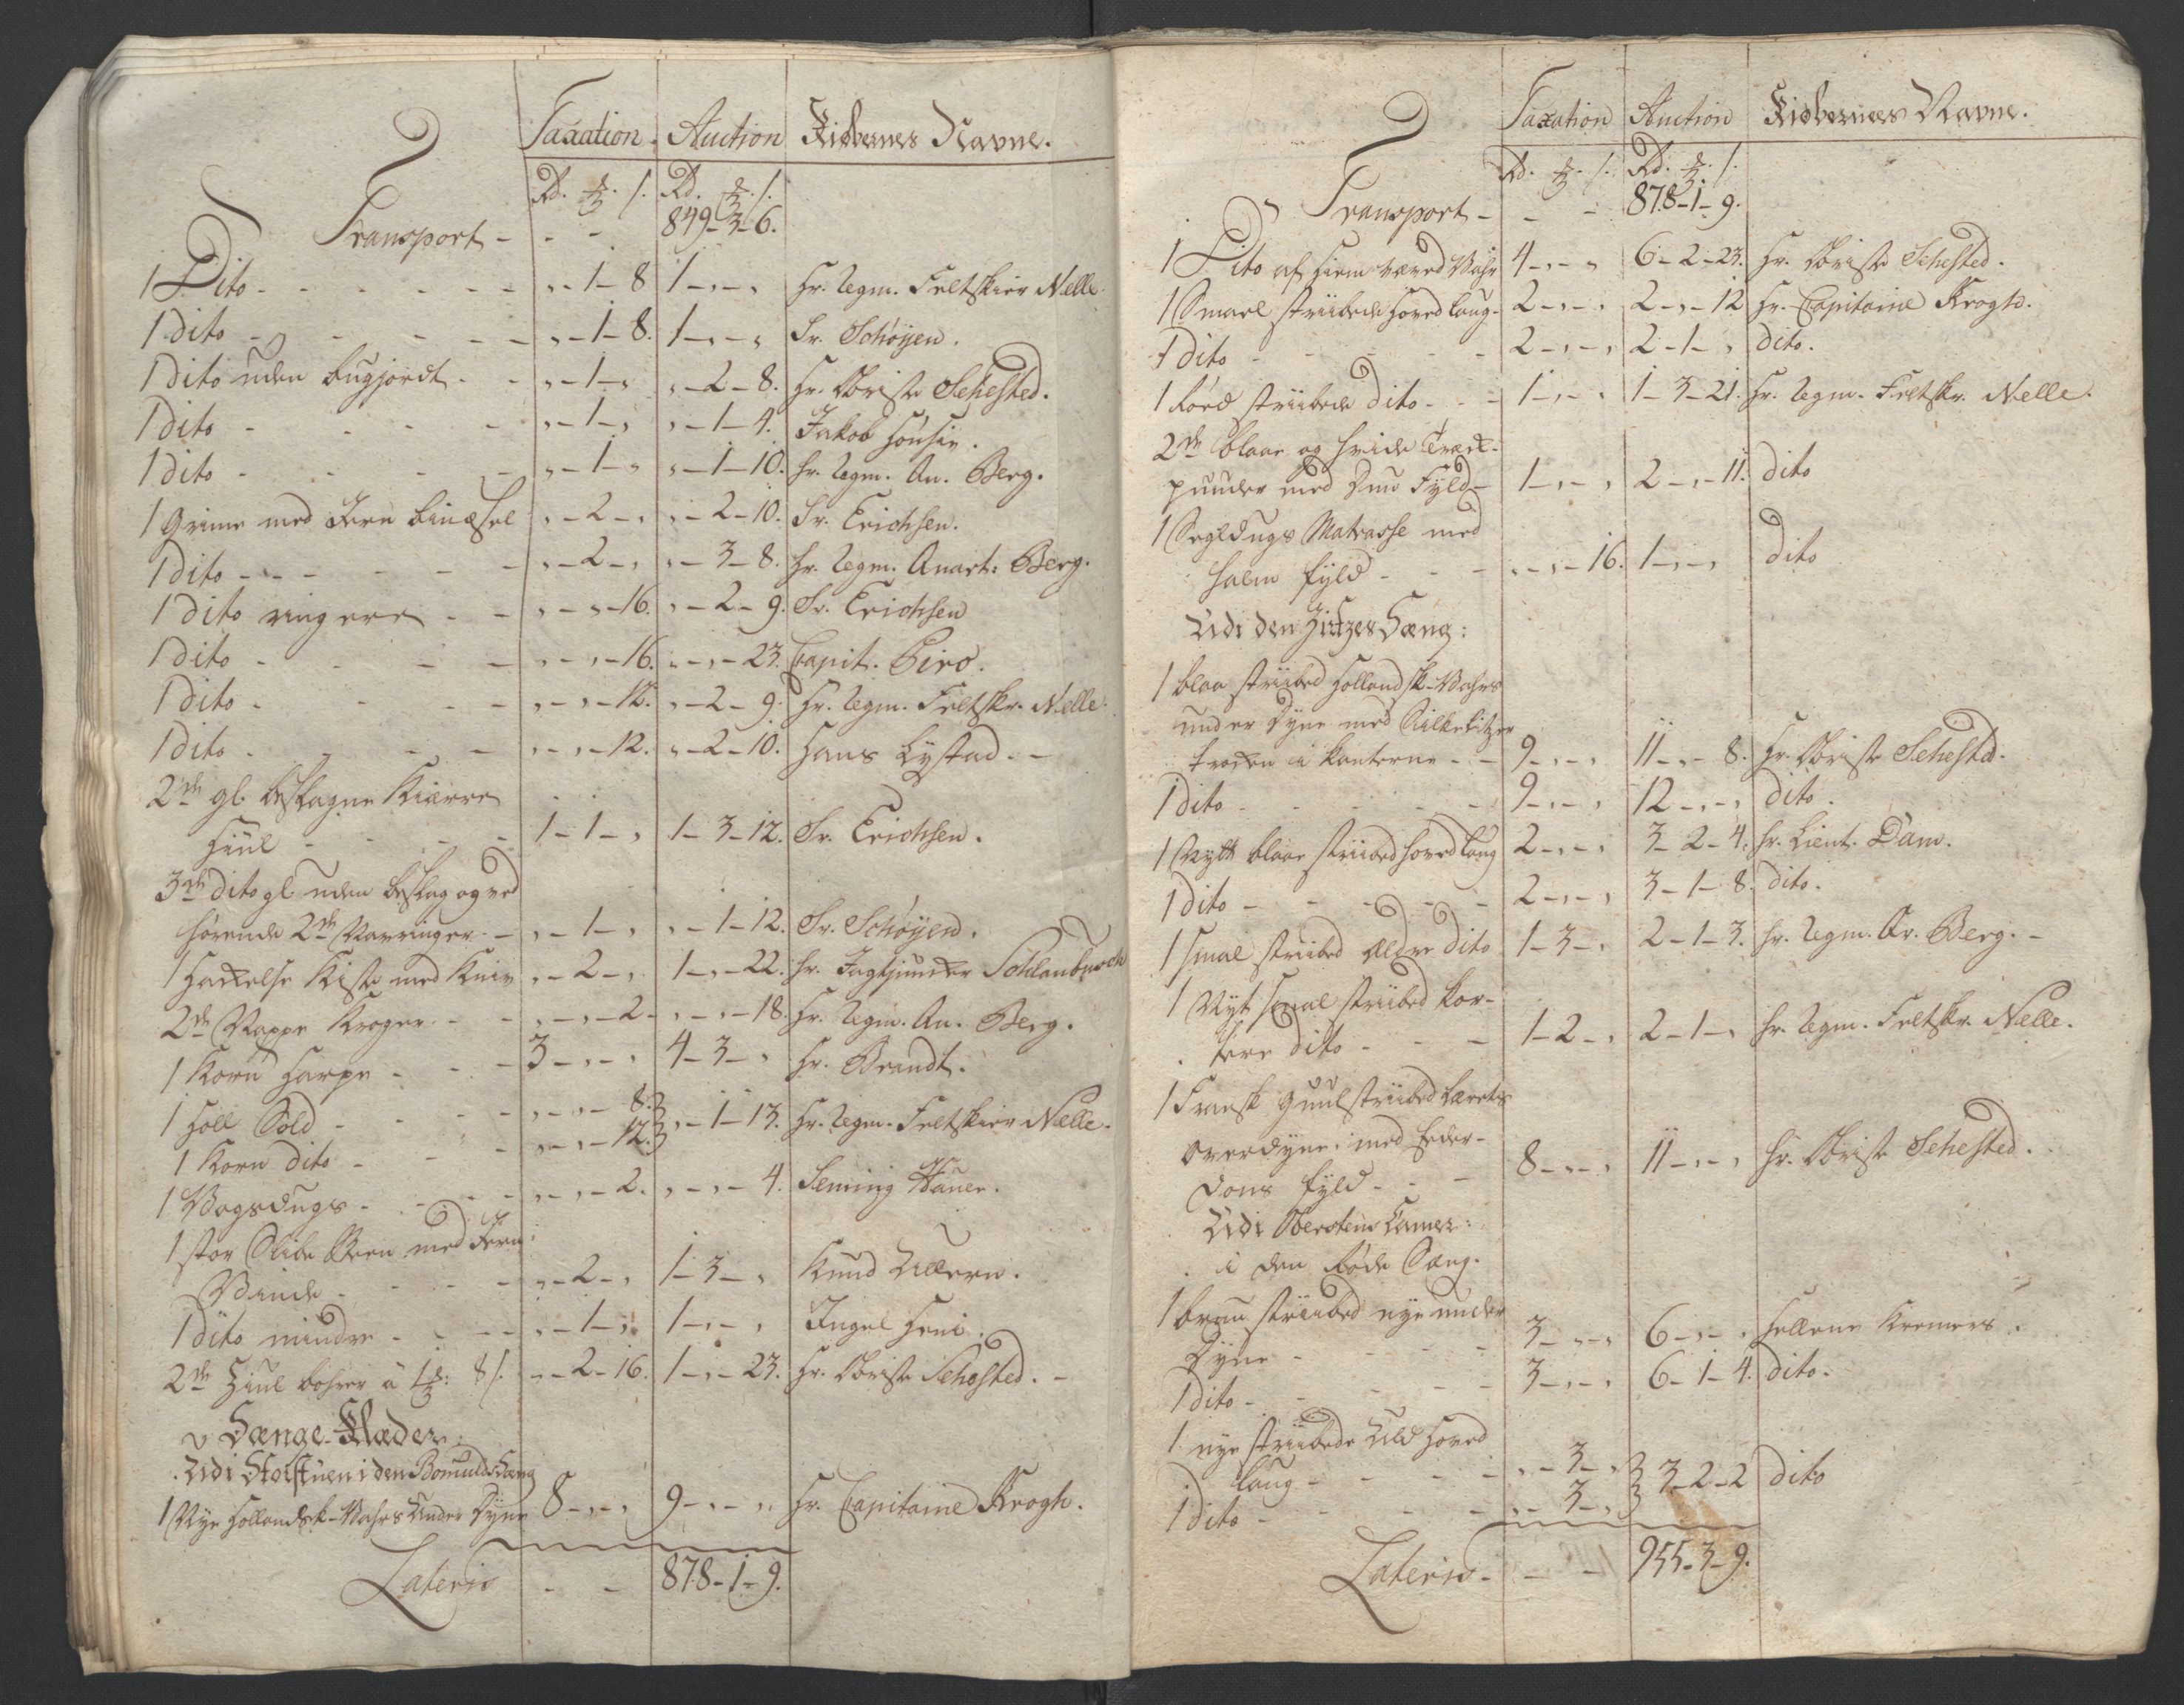 Taxation. Auction Kiøbernes Navne.
Rd. ℔. ß. Rd. ℔. ß.
Transport - - - 849-3-6.
1 Dito - - - „-1-8 1-„-„ Hr. Regm. Feltskier Nelle.
1 dito - - - „-1-8. 1-„-„ Sr. Schøyen.
1 dito uden bugjordt - „-1-„ „-2-8. Hr. Obriste Sehested.
1 dito - - - „-1-„ „-1-4. Jakob
1 dito - - - „-1-„ „-1-10. Hr. Regm. Qu. Berg.
1 Grime med Jern bindsel „-2-„ „-2-10. Sr. Erichsen.
1 dito - - - „-2-„ „-3-8. Hr. Regm. Quart: Berg.
1 dito ringere - - „-„-16. „-2-9. Sr. Erichsen
1 dito - - - „-„-16. „-„-23. Capit. Biro.
1 dito - - - „-„-12. „-2-9. Hr. Regm. Feltskr. Nelle.
1 dito - - - „-„-12. „-2-10. Hans Lystad. -
2de gl. beslagne Kiærre
Hiul - - - 1-1-„ 1-3-12. Sr. Erichsen.
3de dito gl. uden beslag og ved
hørende 2de Navringer - „-1-„ „-1-12. Sr. Schøyen.
1 Hakkelse Kiste med Kniv „-2-„ 1-„-22. Hr. Jagtjunker Schlanbusch
2de Rappe Kroger - - „-„-2. „-„-18. Hr. Regm. Qu. Berg.
1 Korn Harpe - - 3-„-„ 4-3-„ Hr. Brandt.
1 Holl Sold - - - „-„-8.
1 Korn dito - - - „-„-12. „-1-13. Hr. Regm. Feltskier Nelle.
1 Bagsdugs - - - „-„-2. „-„-4. Seming
1 stor Slibe Steen med Jern
Vinde - - - „-2-„ 1-3-„ Knud Ullern.
1 dito mindre - - - „-1-„ 1-„-„ Ingel
2de Hiul bohrer à 1 ℔: 8 ß. „-2-16. 1-„-23. Hr. Obriste Sehested. -
Sænge-Klæder.
Udi Storstuen i den Bomulds Sæng
1 Nye Hollandsk-Vahrs Under Dyne 8-„-„ 9-„-„ Hr. Capitaine Krogh.
Lateris - - 878-1-9.
Taxation Auction Kiøbernes Navne.
Rd. ℔. ß. Rd. ℔. ß.
Transport - - - 878-1-9.
1 Dito af Hiem væved Vahr 4-„-„ 6-2-23. Hr. Obriste Sehested.
1 Smael striibede Hoved laug- 2-„-„ 2-„-12 Hr. Capitaine Krogh.
1 dito - - - 2-„-„ 2-1-„ dito.
1 Røed striibede dito - - 1-„-„ 1-3-21. Hr. Regm. Feltskr. Nelle.
2de blaae og hvide Træk-
puuder med Duu Fyld- 1-„-„ 2-„-11. dito
1 Segldugs Matrasse med
halm fyld - - - „-„-16. 1-„-„ dito
Udi den Zirtzes Sæng:
1 blaa striibed Hollandsk-Vahrs
under Dyne med Silke litzer
trækken i Kanterne - - 9-„-„ 11-„-8. Hr. Obriste Sehested.
1 dito - - - 9-„-„ 12-„-„ dito.
1 Nytt blaae striibed Hovedlaug 2-„-„ 3-2-4. Hr. Lieut. Dam.
1 dito - - - 2-„-„ 3-1-8. dito.
1 smal striibed Ældre dito 1-3-„ 2-1-3. Hr. Regm. Qv. Berg. -
1 Nyt smal striibed kor-
tere dito - - - 1-2-„ 2-1-„ Hr. Regm. Feltskr. Nelle.
1 Fransk Guulstriibed Lærets
overdyne, med Eder-
duns fyld - - - 8-„-„ 11-„-„ Hr. Obriste Sehested.
Udi Oberstens Kamer:
i den Røde Sæng.
1 bruun striibed nye under
Dyne - - - 3-„-„ 6-„-„ Hellene Kremers.
1 dito - - - 3-„-„ 6-1-4. dito.
1 nye striibede Uld Hoved
laug - - - „-3-„
1 dito - - - „-3-„ 3-2-2 dito
Lateris - - - 955-3-9.